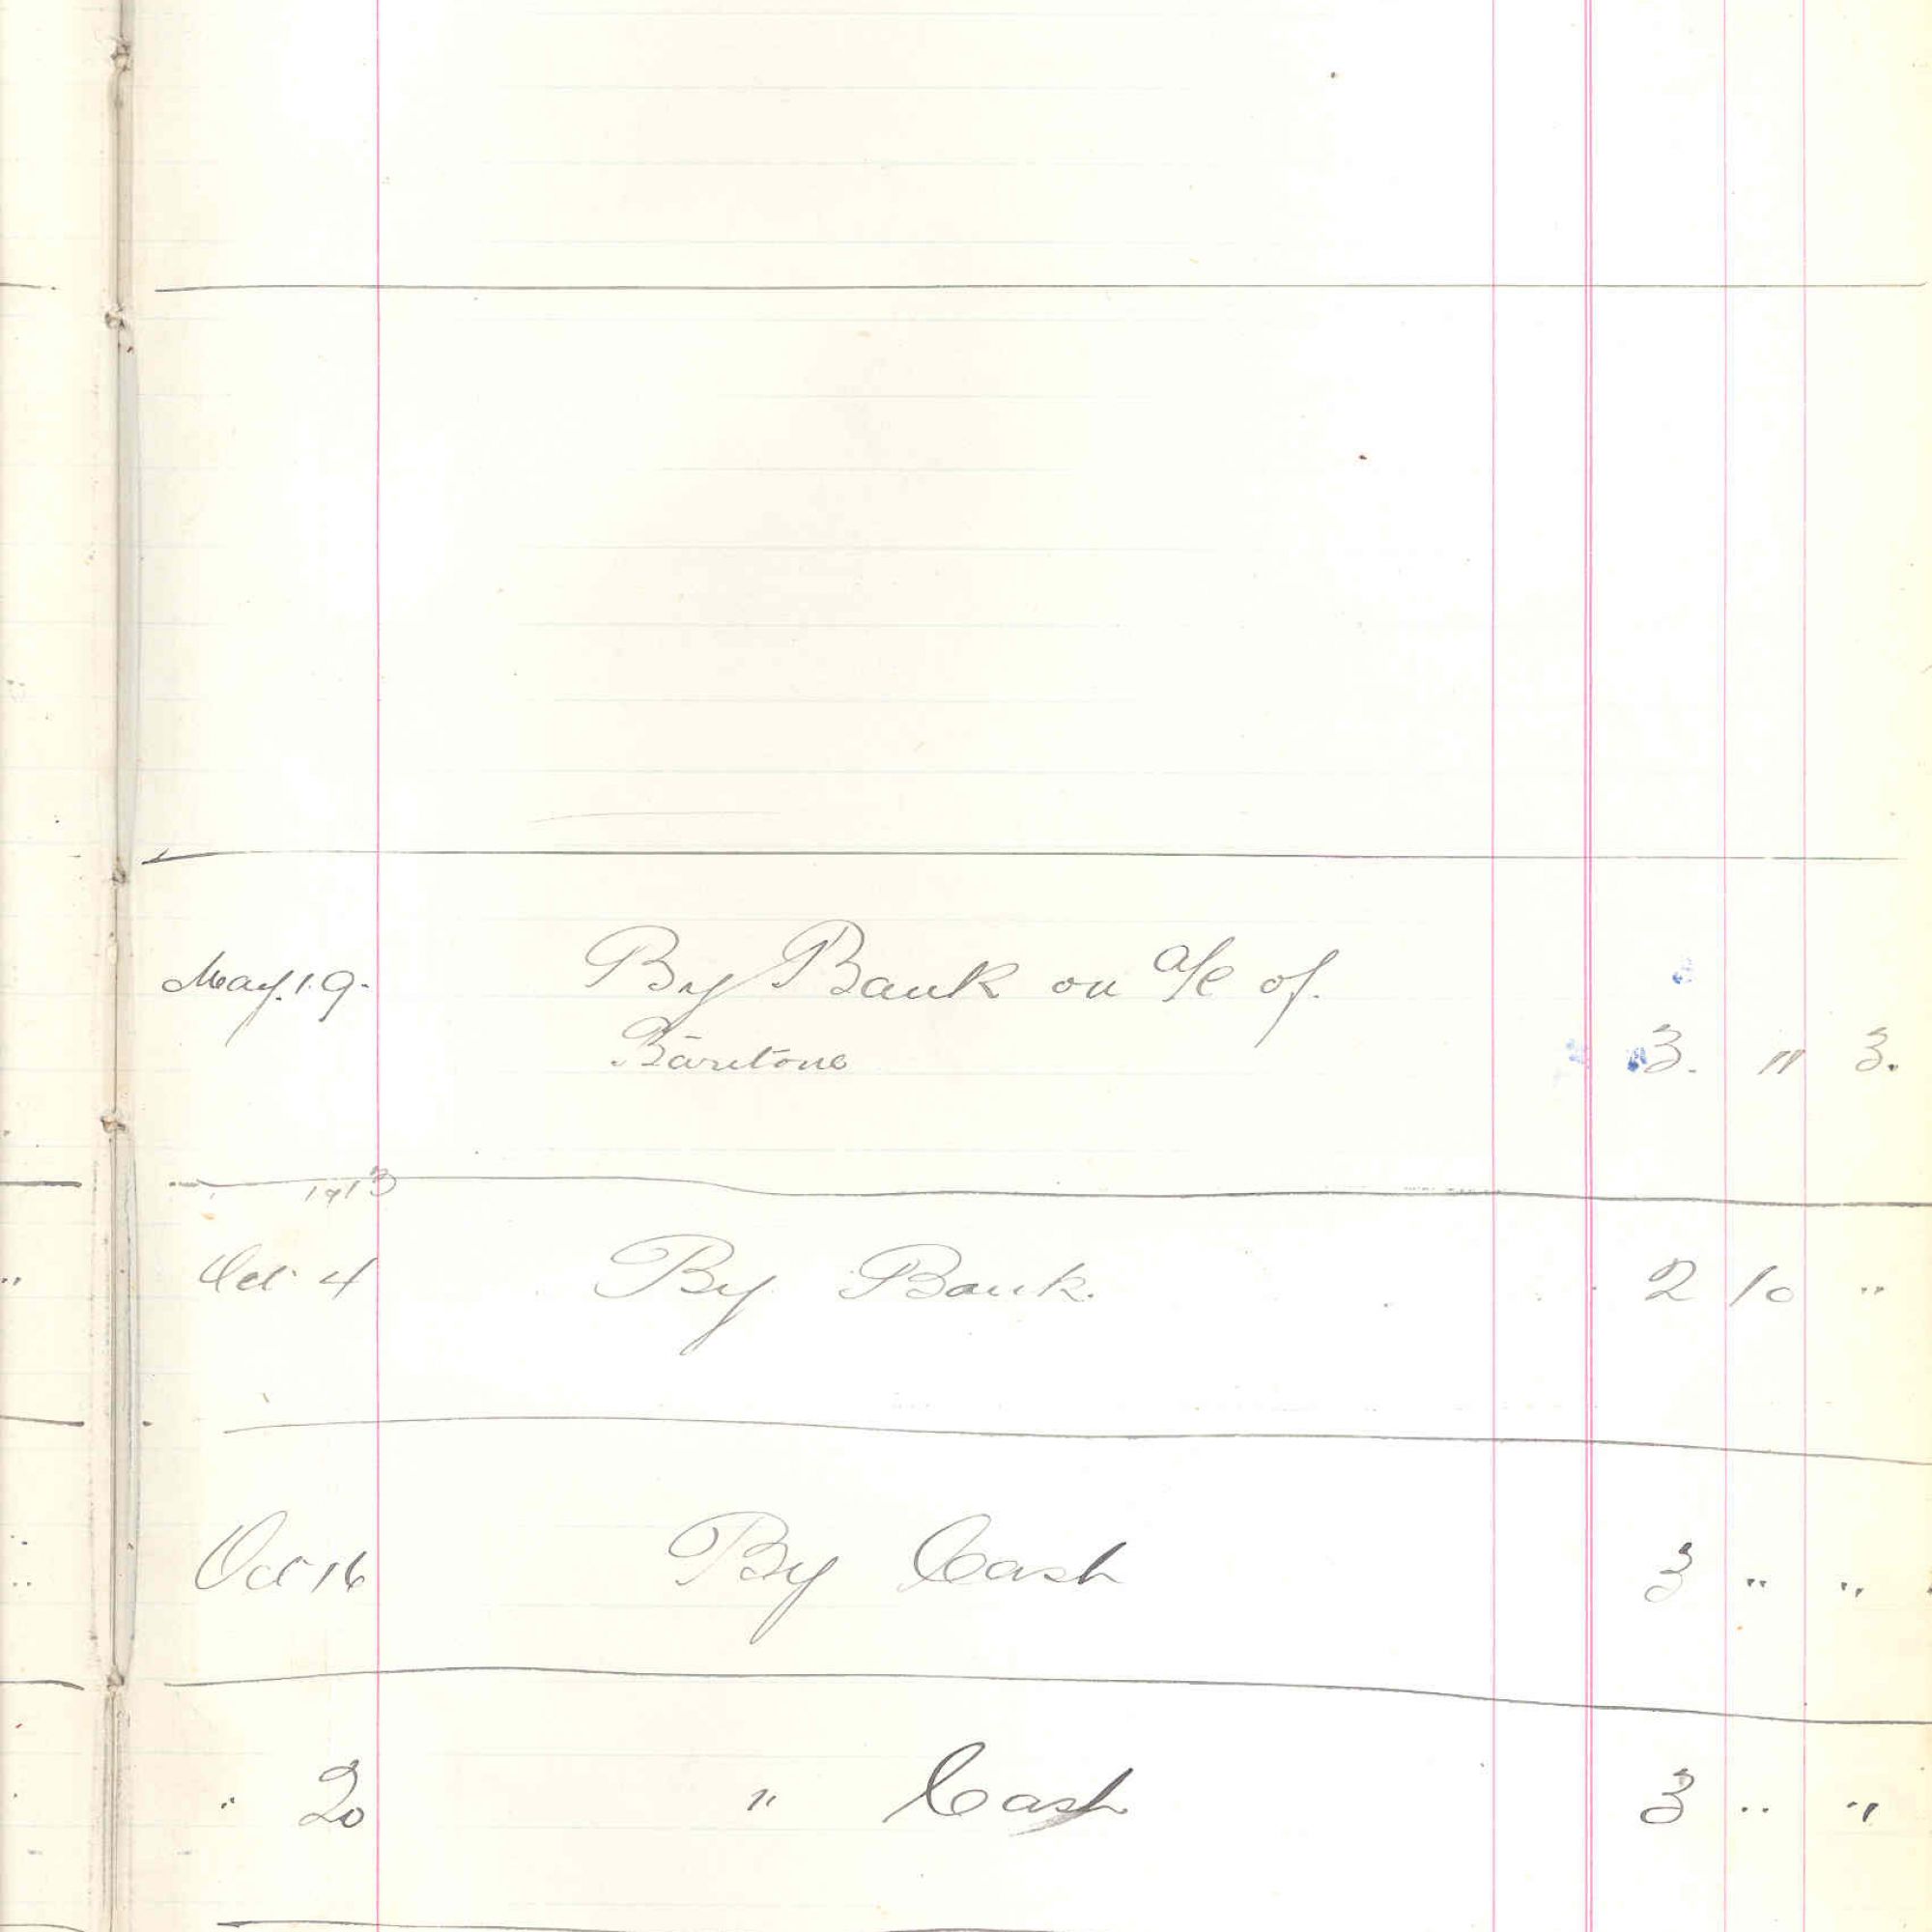 May. 19. By Bank on a/c of.
Baritone 3. " 3.
1913
Oct 4 By Bank. 2 10 "
Oct 16 By Cash 3 " "
" 20 " Cash 3 " "